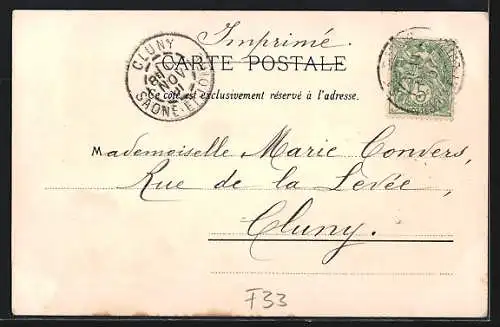 Imprimé.
CARTE POSTALE
Ce côté est exclusivement réservé à l'adresse.
CLUNY
NOV
SAONE-ET-LOIRE
5
Mademoiselle Marie Convers,
Rue de la Levée,
Cluny.
F33